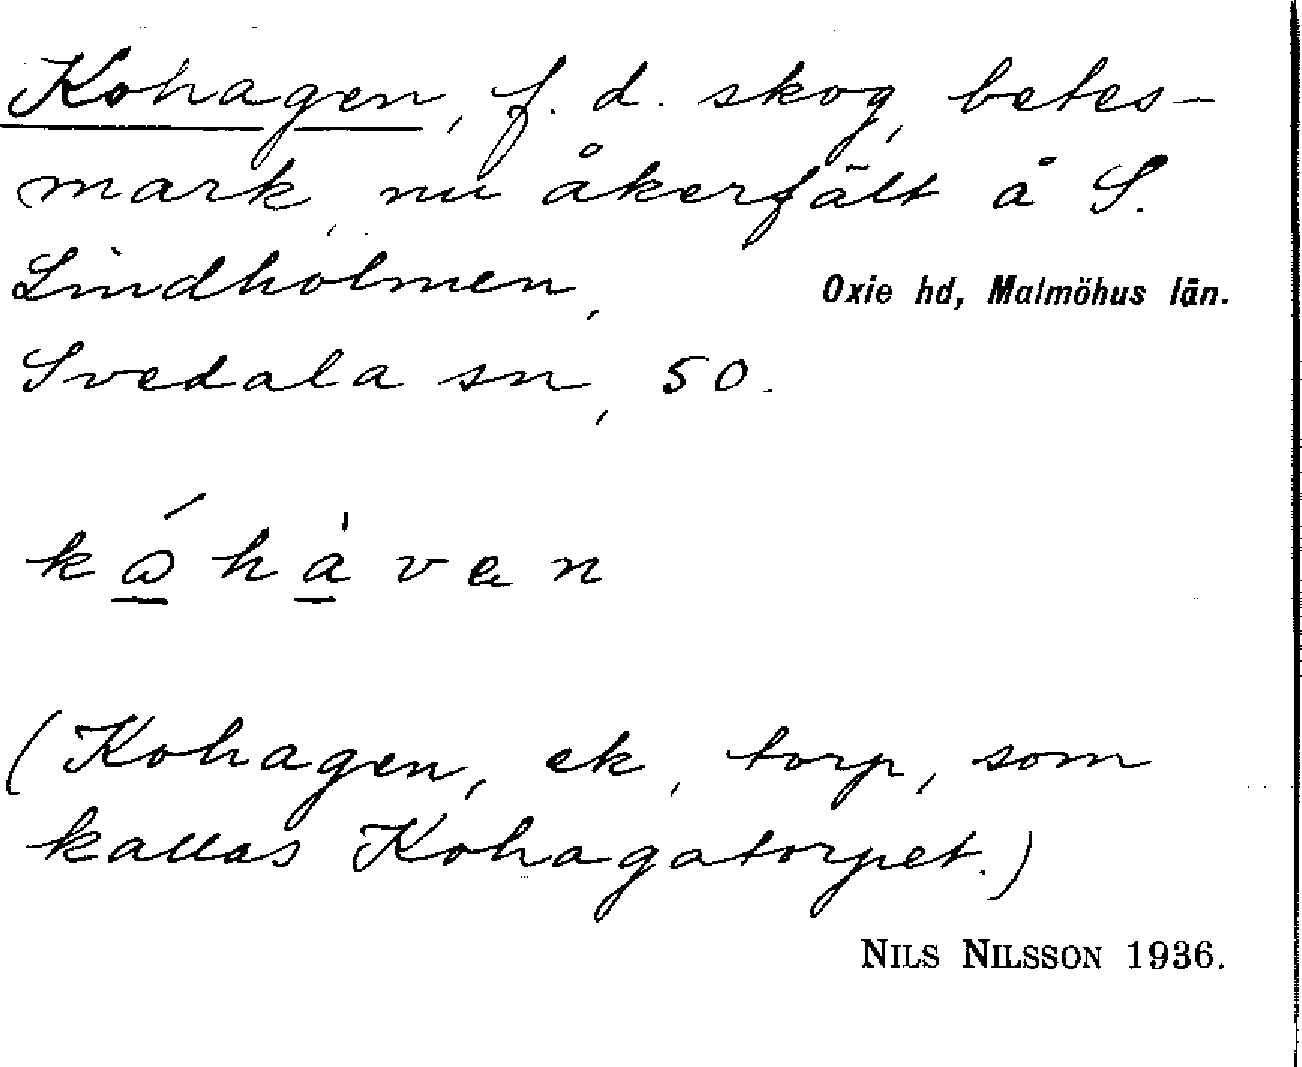 Kohagen, f. d. skog, betes-
mark, nu åkerfält å S.
Lindholmen,
Oxie hd, Malmöhus län.
Svedala sn, 50.
(Kohagen, ek, torp, som
kallas Kohagatorpet.)
NILS NILSSON 1936.